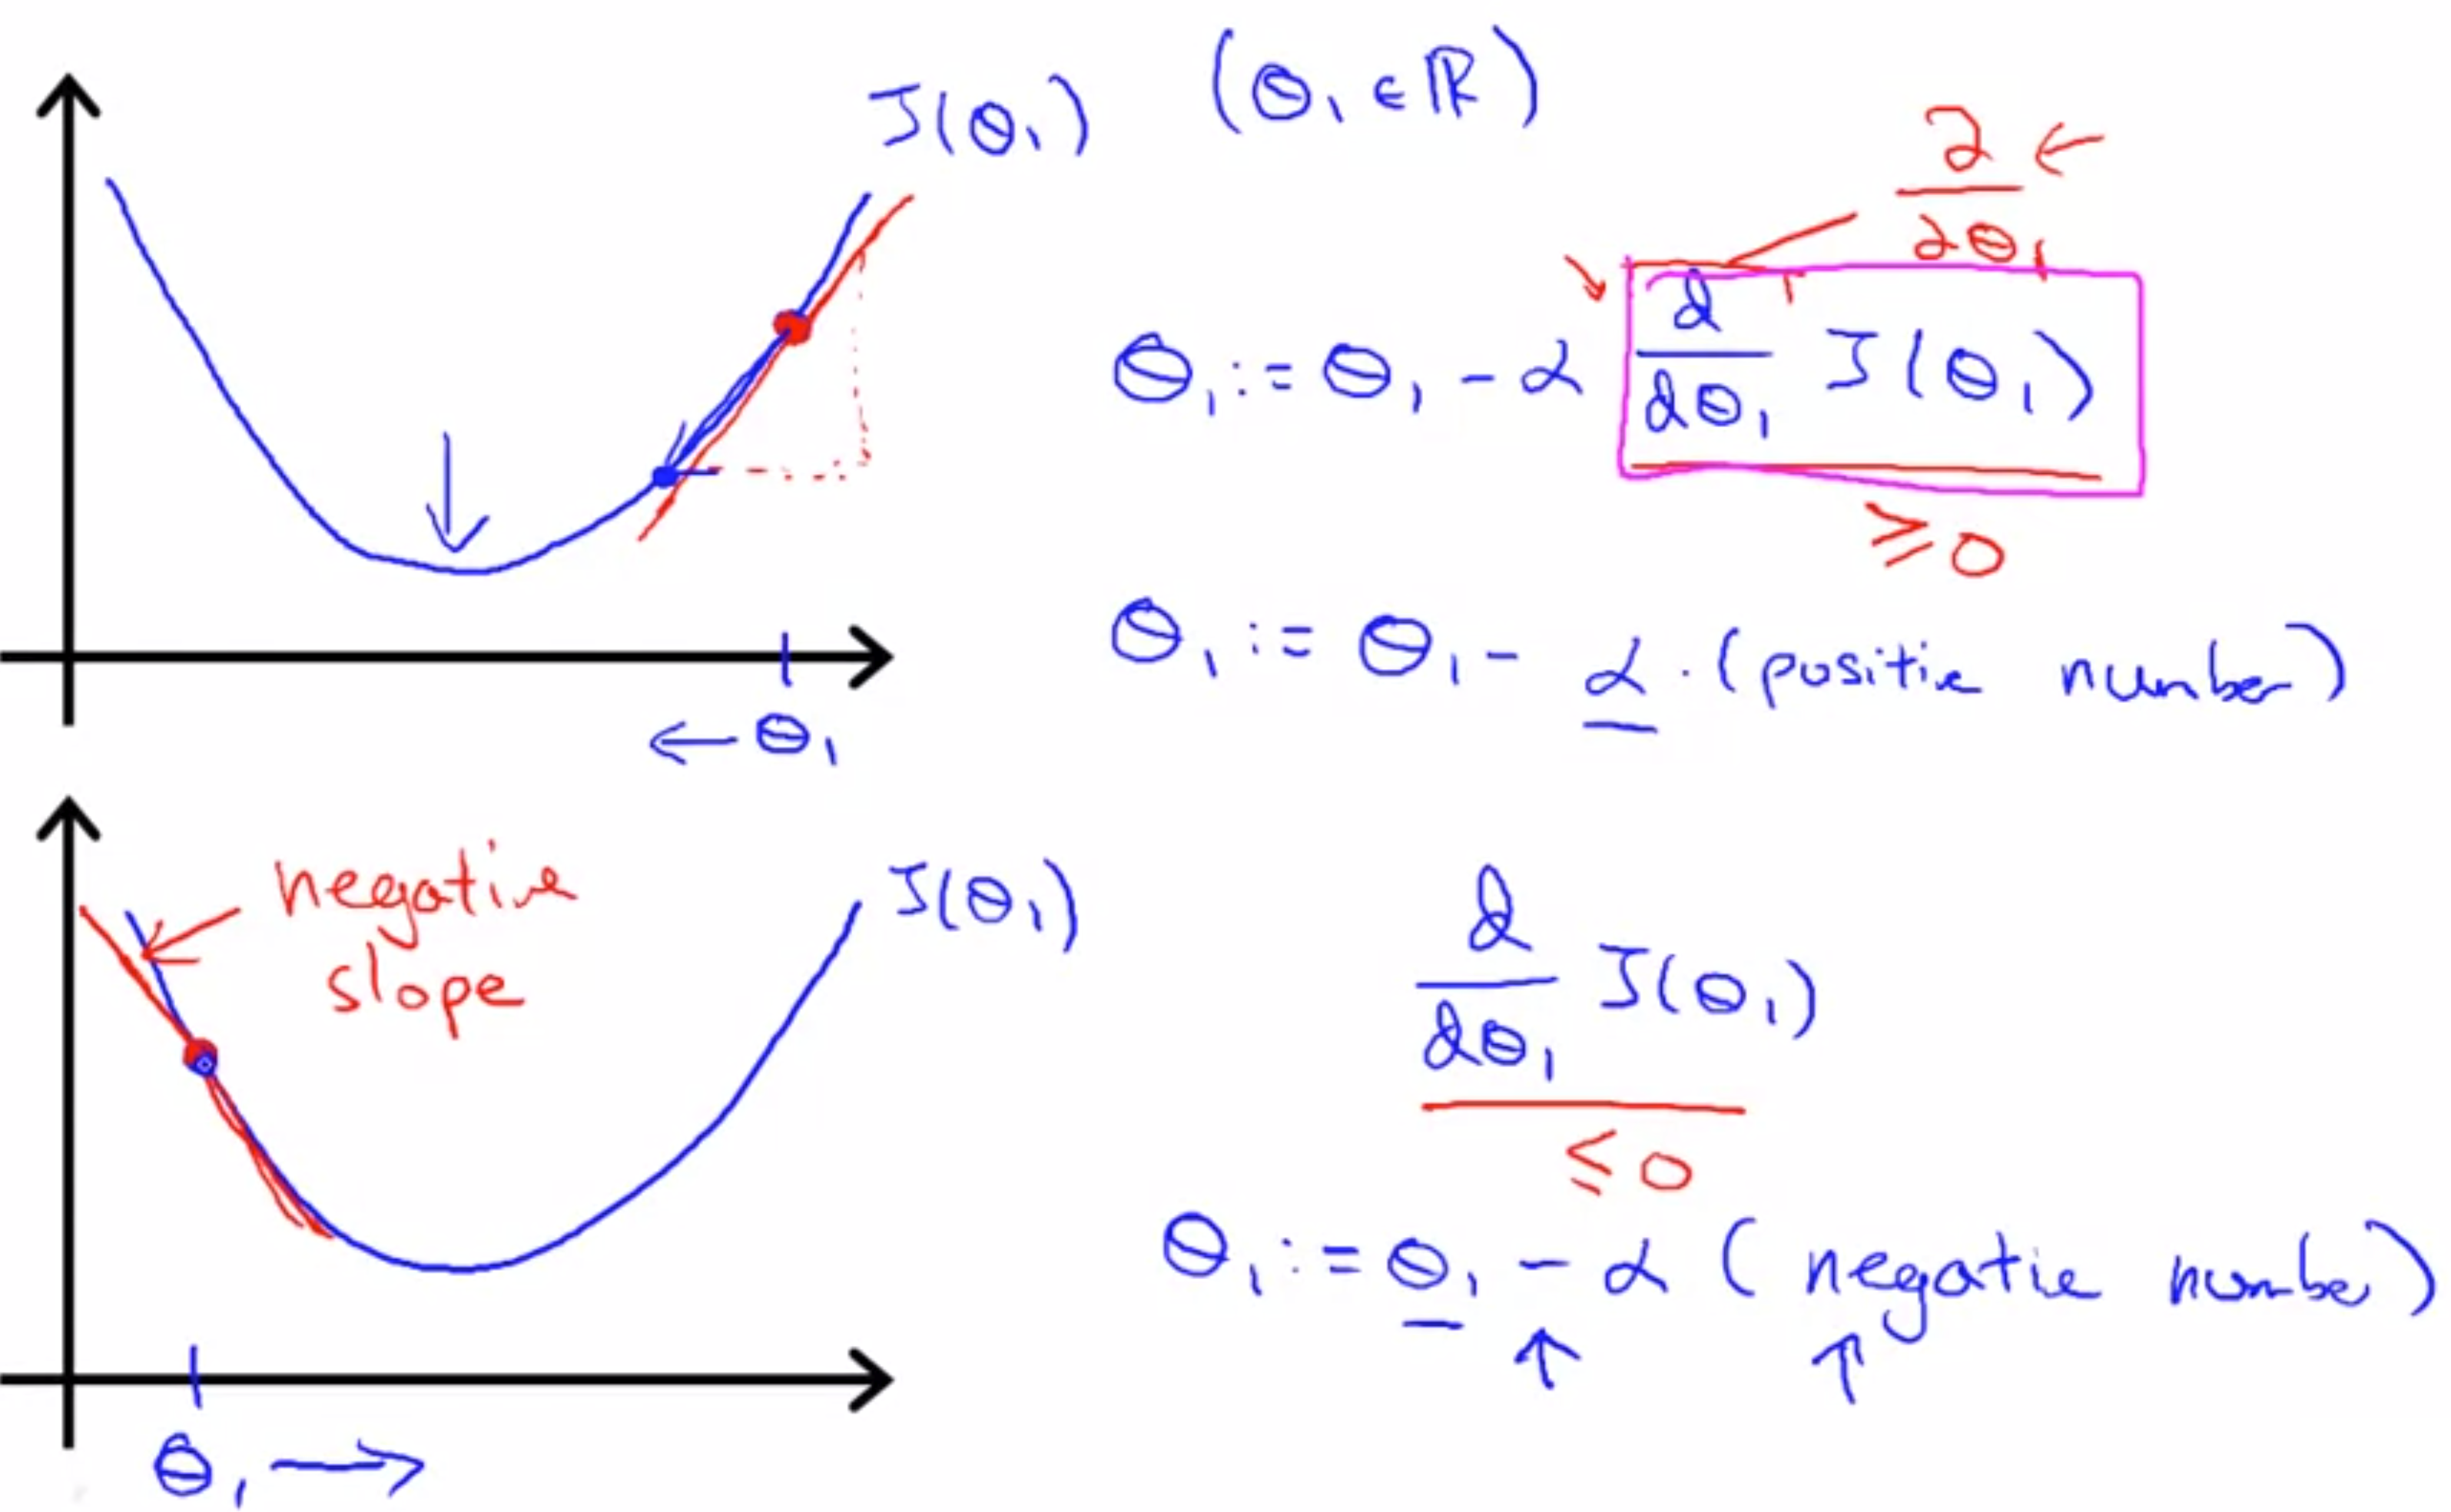 J(θ₁) (θ₁ ∈ ℝ)
∂/∂θ₁
θ₁ := θ₁ - α d/dθ₁ J(θ₁)
≥ 0
θ₁ := θ₁ - α · (positive number)
θ₁
negative
slope
J(θ₁)
d/dθ₁ J(θ₁)
≤ 0
θ₁ := θ₁ - α (negative number)
θ₁